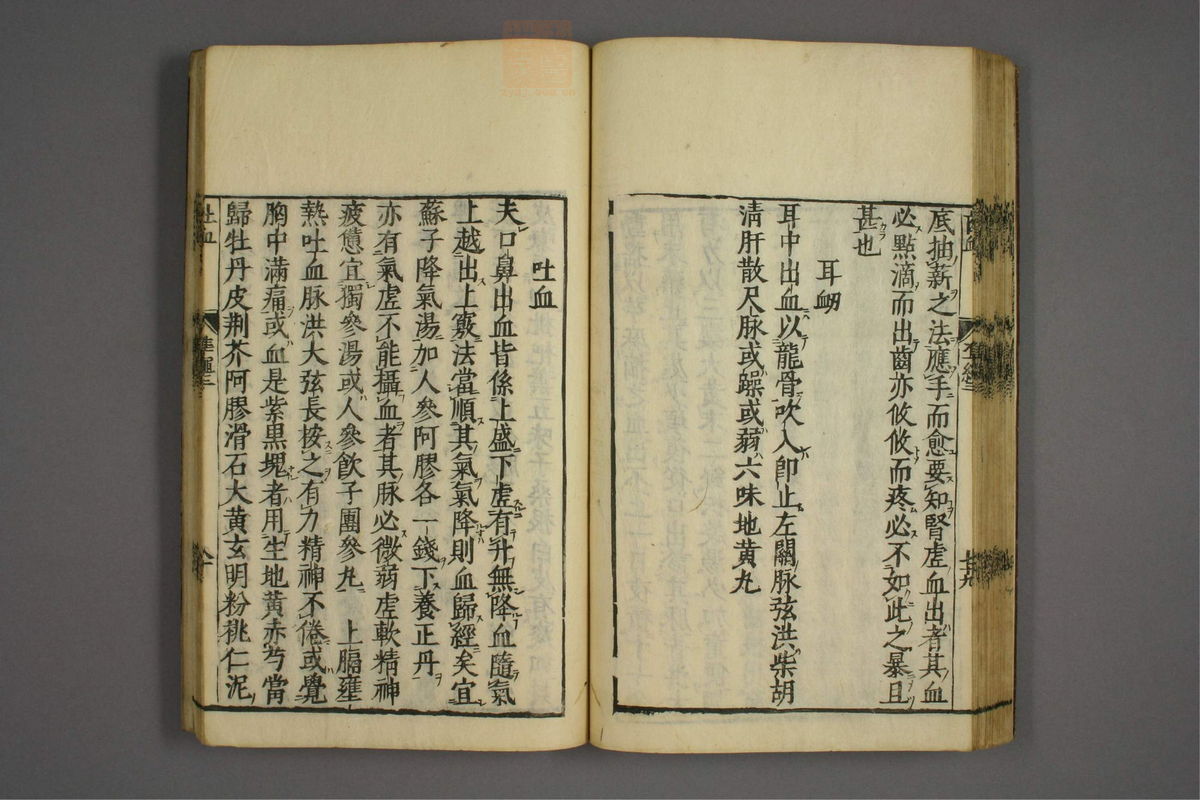 底抽薪之法應手而愈要知腎虛血出者其血
必點滴而出齒亦攸攸而疼必不如此之暴且
甚也
耳衂
耳中出血以龍骨吹入卽止左關脉弦洪柴胡
淸肝散尺脉或躁或弱六味地黄丸
吐血
夫口鼻出血皆係上盛下虛有升無降血隨氣
上越出上竅法當順其氣氣降則血歸經矣宜
蘇子降氣湯加人參阿膠各一錢下養正丹
亦有氣虛不能攝血者其脉必微弱虛軟精神
疲憊宜獨參湯或人參飲子團參丸 上膈壅
熱吐血脉洪大弦長按之有力精神不倦或覺
胸中滿痛或血是紫黒塊者用生地黄赤芍當
歸牡丹皮荆芥阿膠滑石大黄玄明粉桃仁泥
吐血